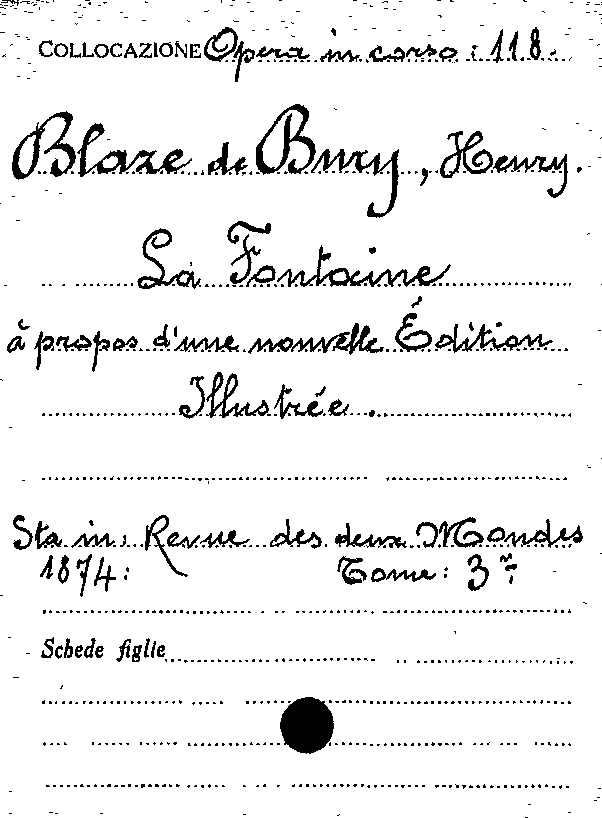 COLLOCAZIONE Opera in corso: 118.
Blaze de Bury, Henry.
La Fontaine
à propos d'une nouvelle Édition
Illustrée.
Sta in: Revue des deux Mondes
1874: Tome: 3º:
Schede figlie